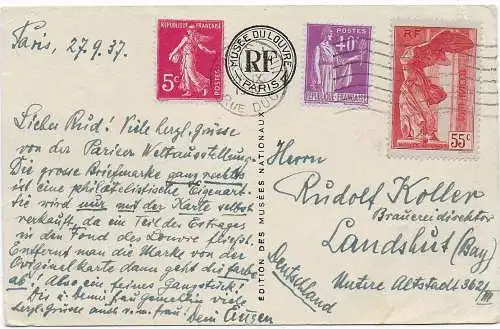 Paris, 27.9.37.
REPUBLIQUE FRANÇAISE
5c
POSTES
MUSÉE DU LOUVRE
RF
PARIS
RUE DU
POSTES
40c
REPUBLIQUE FRANÇAISE
RF
55c
Lieber Rud! Viele herzl. Grüsse
von der Pariser Weltausstellung.
Die grosse Briefmarke ganz rechts
ist eine philatelistische Eigenart.
Sie wird nur mit der Karte selbst
verkauft, da ein Teil des Ertrages
in den Fond des Louvre fliesst.
Entfernt man die Marke von der
Originalkarte dann geht die Farbe
ab! Also ein feines Ganzstück!
Dir u. Deiner Frau viele
herzl. Grüsse auch v. m. Frau. Dein
EDITION DES MUSÉES NATIONAUX
Herrn
Rudolf Koller
Brauereidirektor
Landshut (Bay)
Untere Altstadt 362 1/III
Deutschland